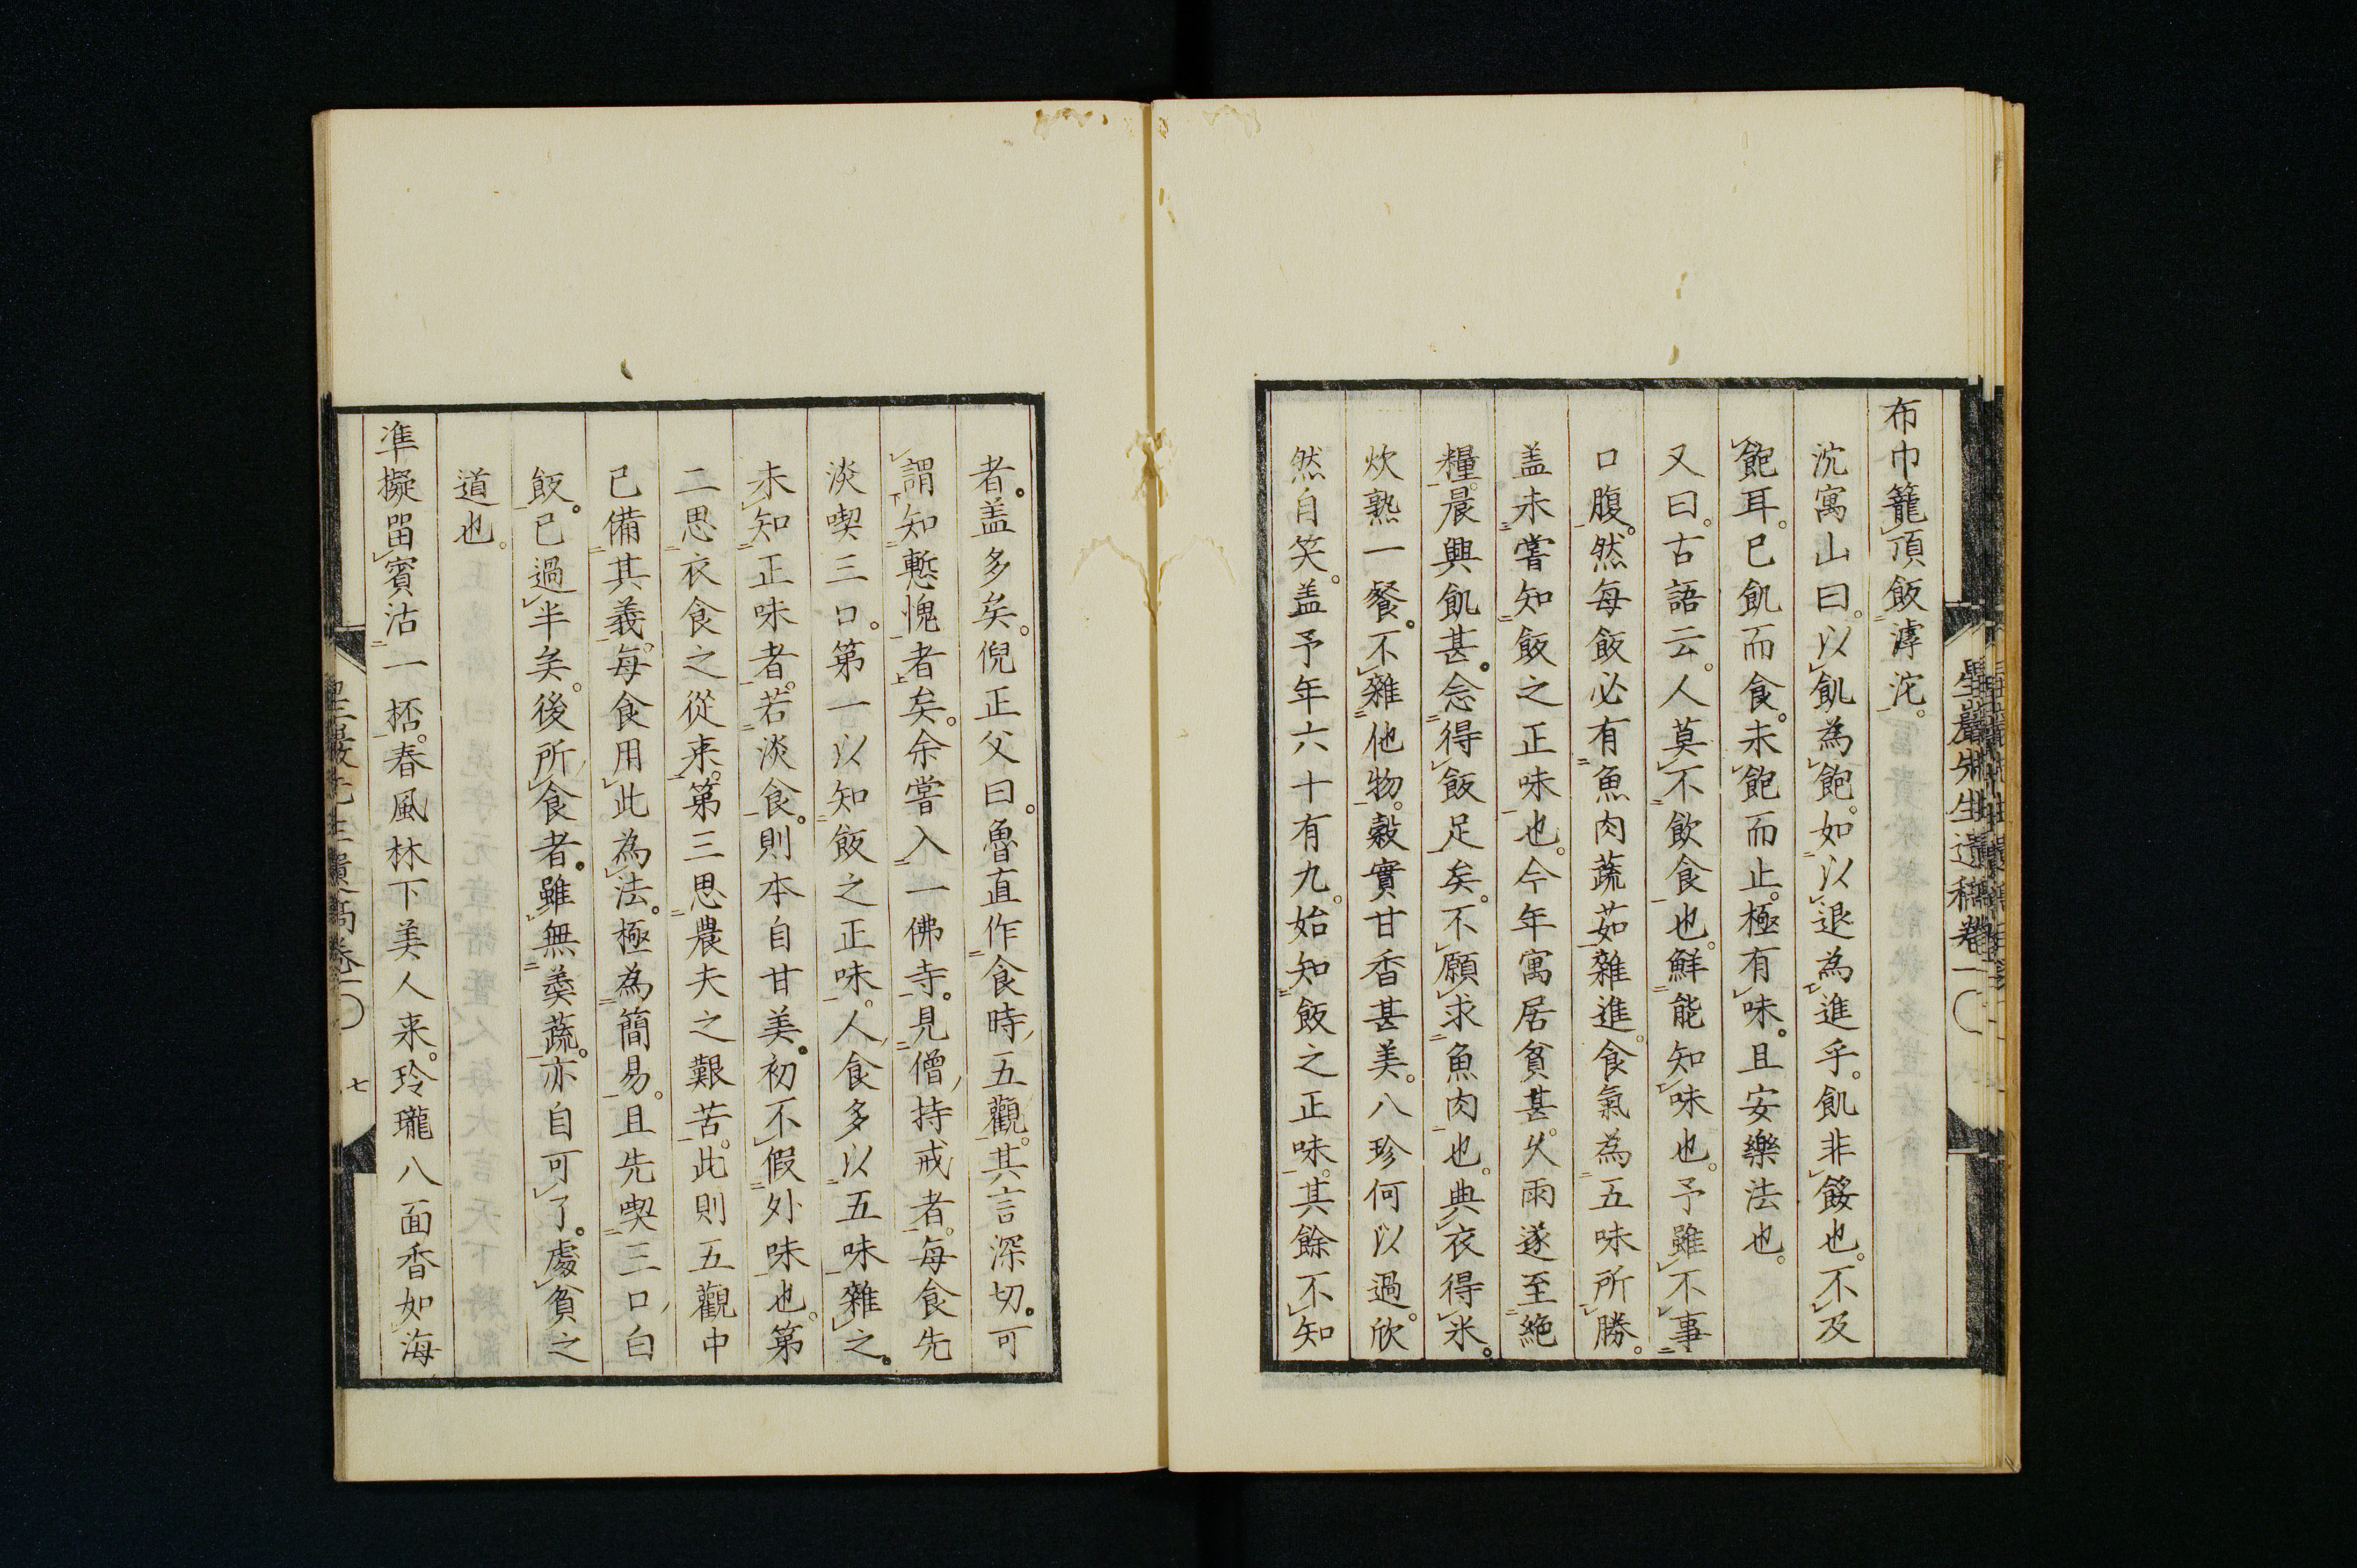 布巾籠頂飯滹沱。
沈寓山曰。以飢為飽。如以退為進乎。飢非餒也。不及
飽耳。已飢而食。未飽而止。極有味。且安樂法也。
又曰。古語云。人莫不飲食也。鮮能知味也。予雖不事
口腹。然每飯必有魚肉蔬茹雜進。食氣為五味所勝。
盖未嘗知飯之正味也。今年寓居貧甚。久雨遂至絶
糧。晨興飢甚。念得飯足矣。不願求魚肉也。典衣得米。
炊熟一餐。不雜他物。穀實甘香甚美。八珍何以過。欣
然自笑。盖予年六十有九。始知飯之正味。其餘不知
者。盖多矣。倪正父曰。魯直作食時五觀。其言深切。可
謂知慙愧者矣。余嘗入一佛寺。見僧持戒者。每食先
淡喫三口。第一以知飯之正味。人食多以五味雜之。
未知正味者。若淡食。則本自甘美。初不假外味也。第
二思衣食之從来。第三思農夫之艱苦。此則五觀中
已備其義。每食用此為法。極為簡易。且先喫三口。白
飯。已過半矣。後所食者。雖無羹蔬。亦自可了。處貧之
道也。
準擬留賓沽一桮。春風林下美人来。玲瓏八面香如海
七